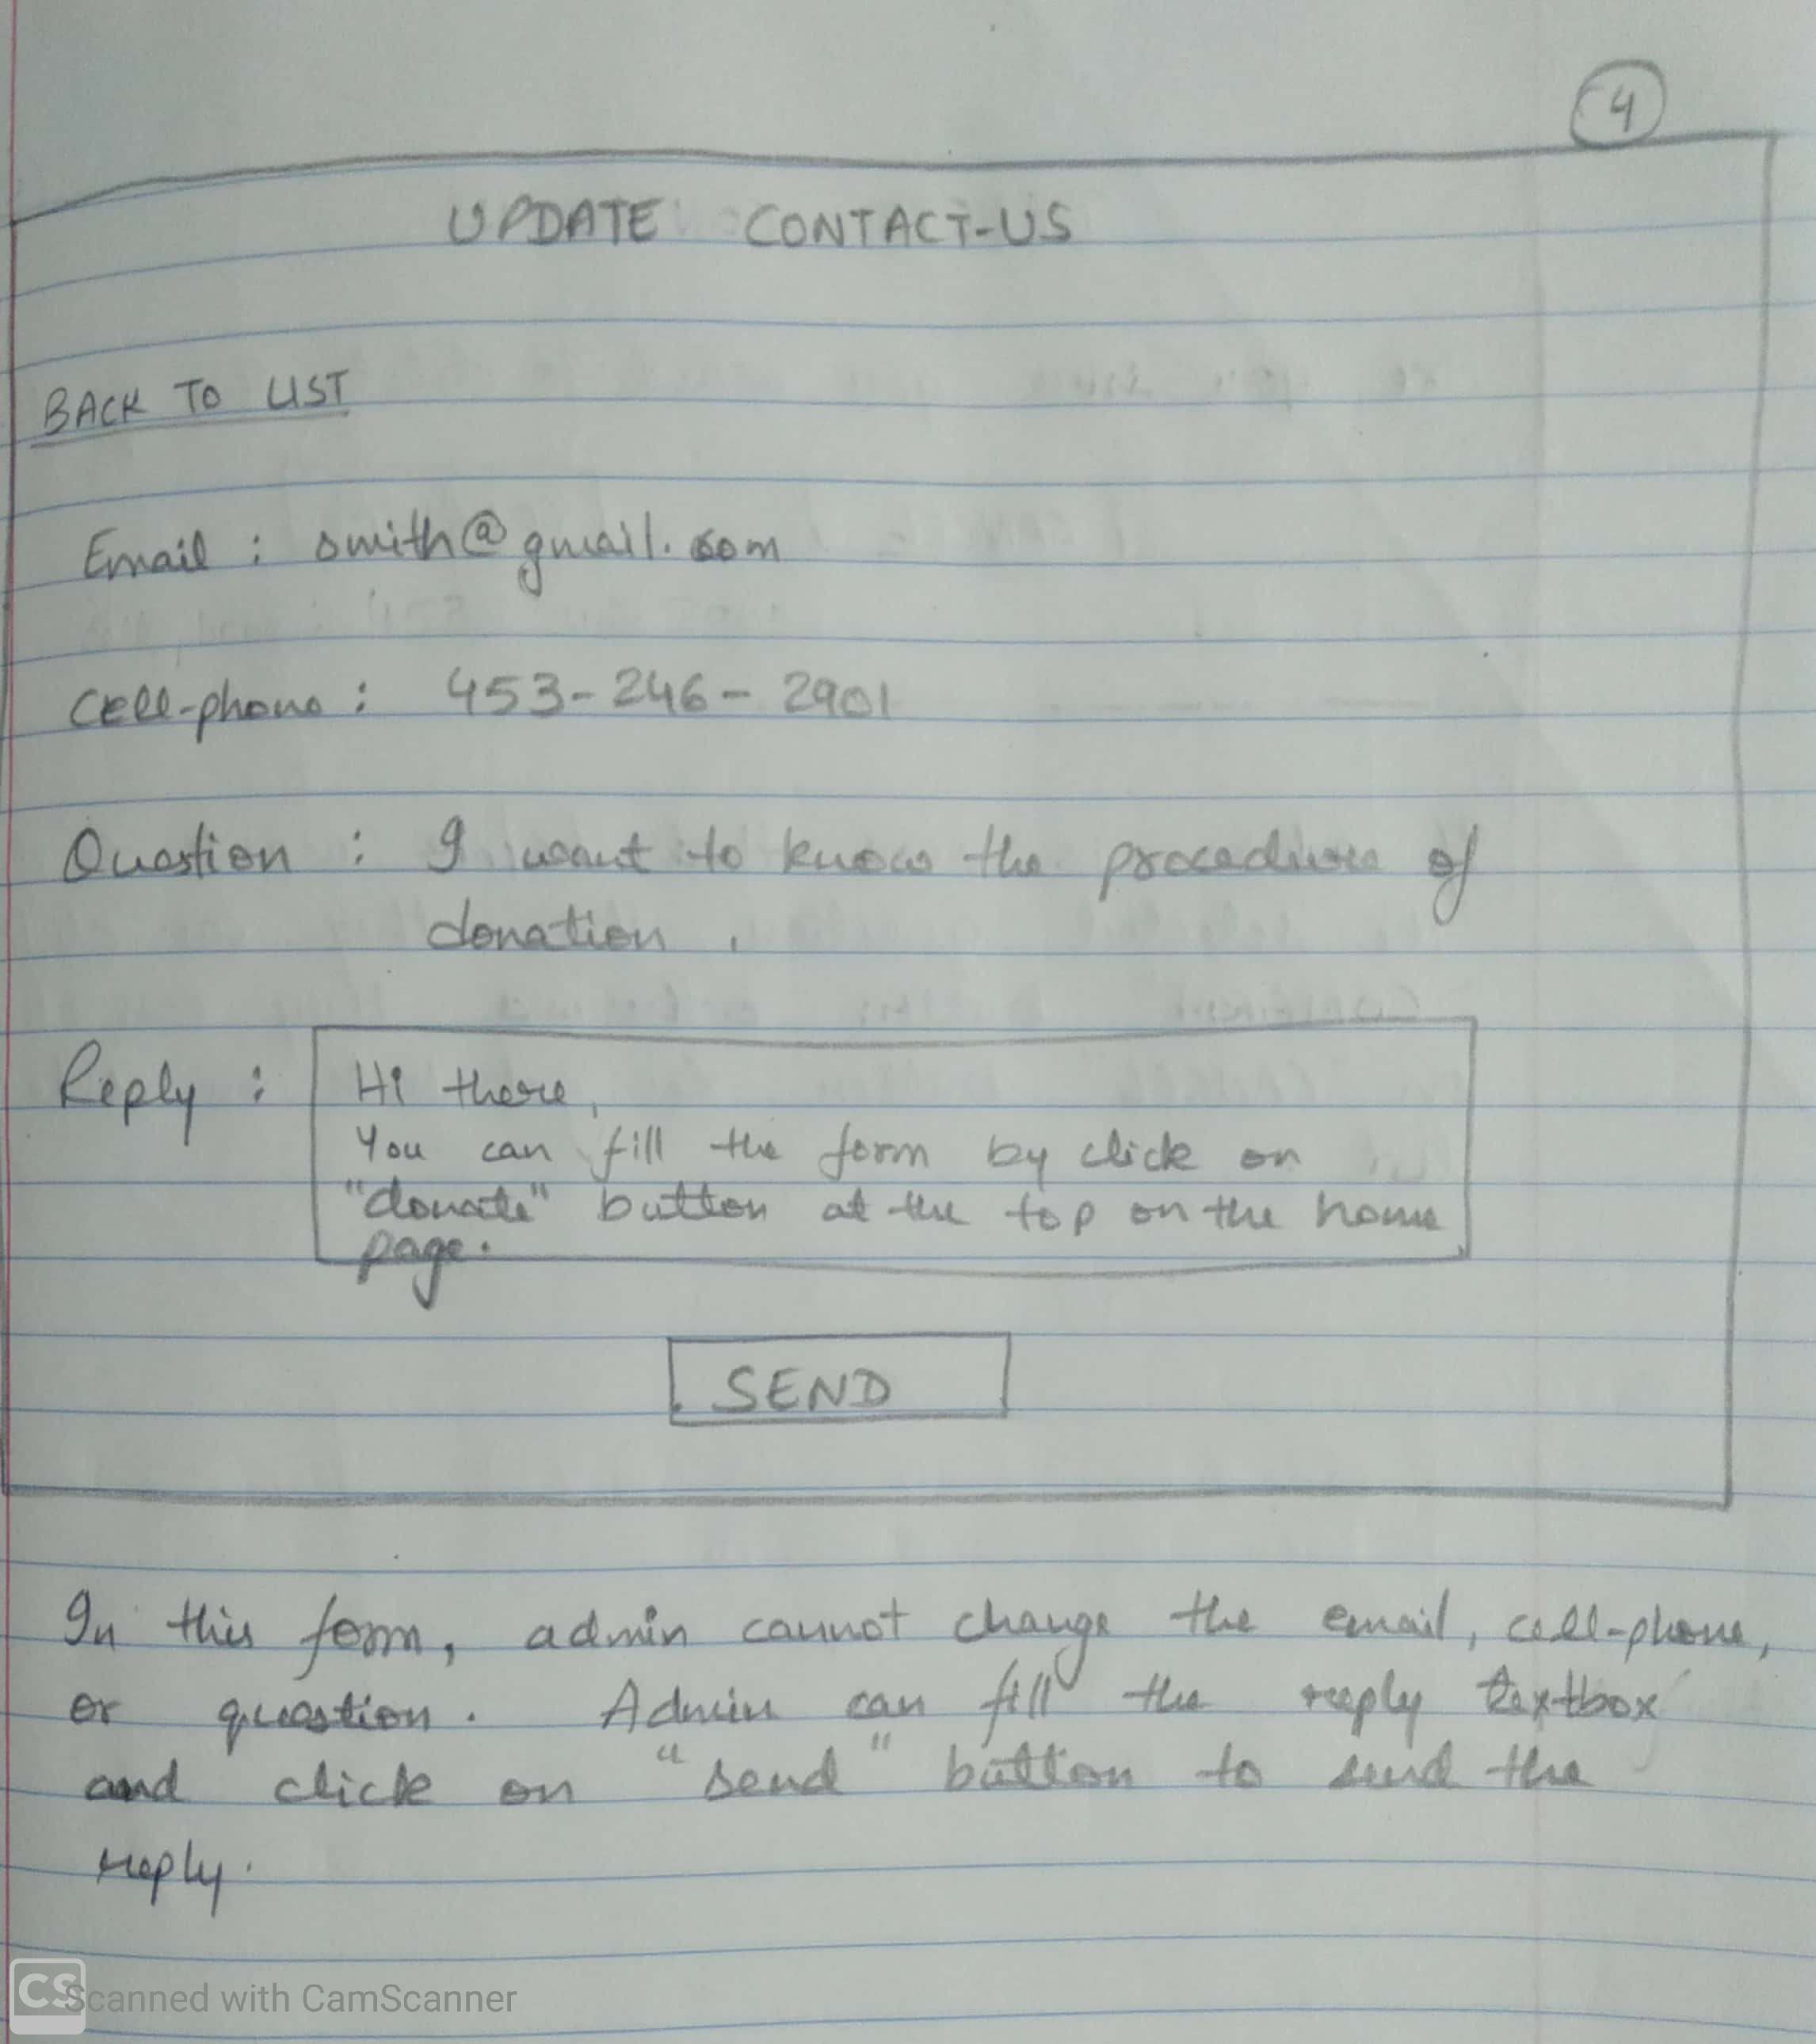 4
UPDATE CONTACT-US
BACK TO LIST
Email : smith@gmail.com
cell-phone : 453-246-2901
Question : I want to know the procedure of
donation.
Reply :
Hi there,
You can fill the form by click on
"donate" button at the top on the home
page.
SEND
In this form, admin cannot change the email, cell-phone,
or question. Admin can fill the reply textbox
and click on "send" button to send the
reply.
CS Scanned with CamScanner